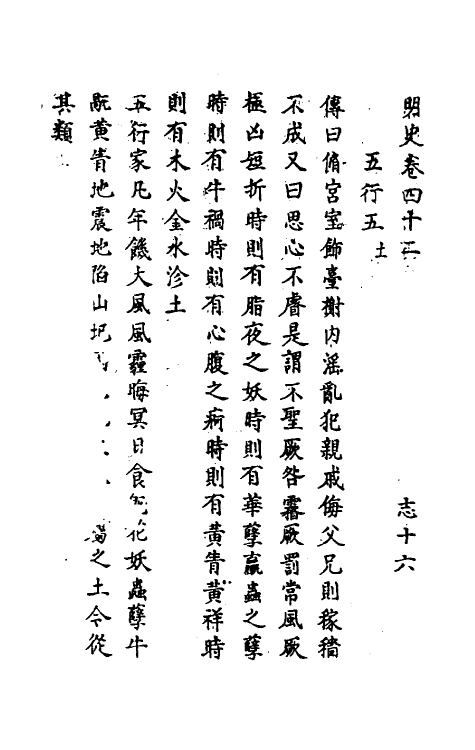 明史卷四十二 志十六
五行五土
傳曰脩宮室飾臺榭内滛亂犯親戚侮父兄則稼穡
不成又曰思心不睿是謂不聖厥咎霿厥罰常風厥
極凶短折時則有脂夜之妖時則有華孽蠃蟲之孽
時則有牛禍時則有心腹之痾時則有黃眚黃祥時
則有木火金水沴土
五行家凡年饑大風風霾晦冥日食 花妖蟲孽牛
黃眚地震地陷山圮 之土今從
其類